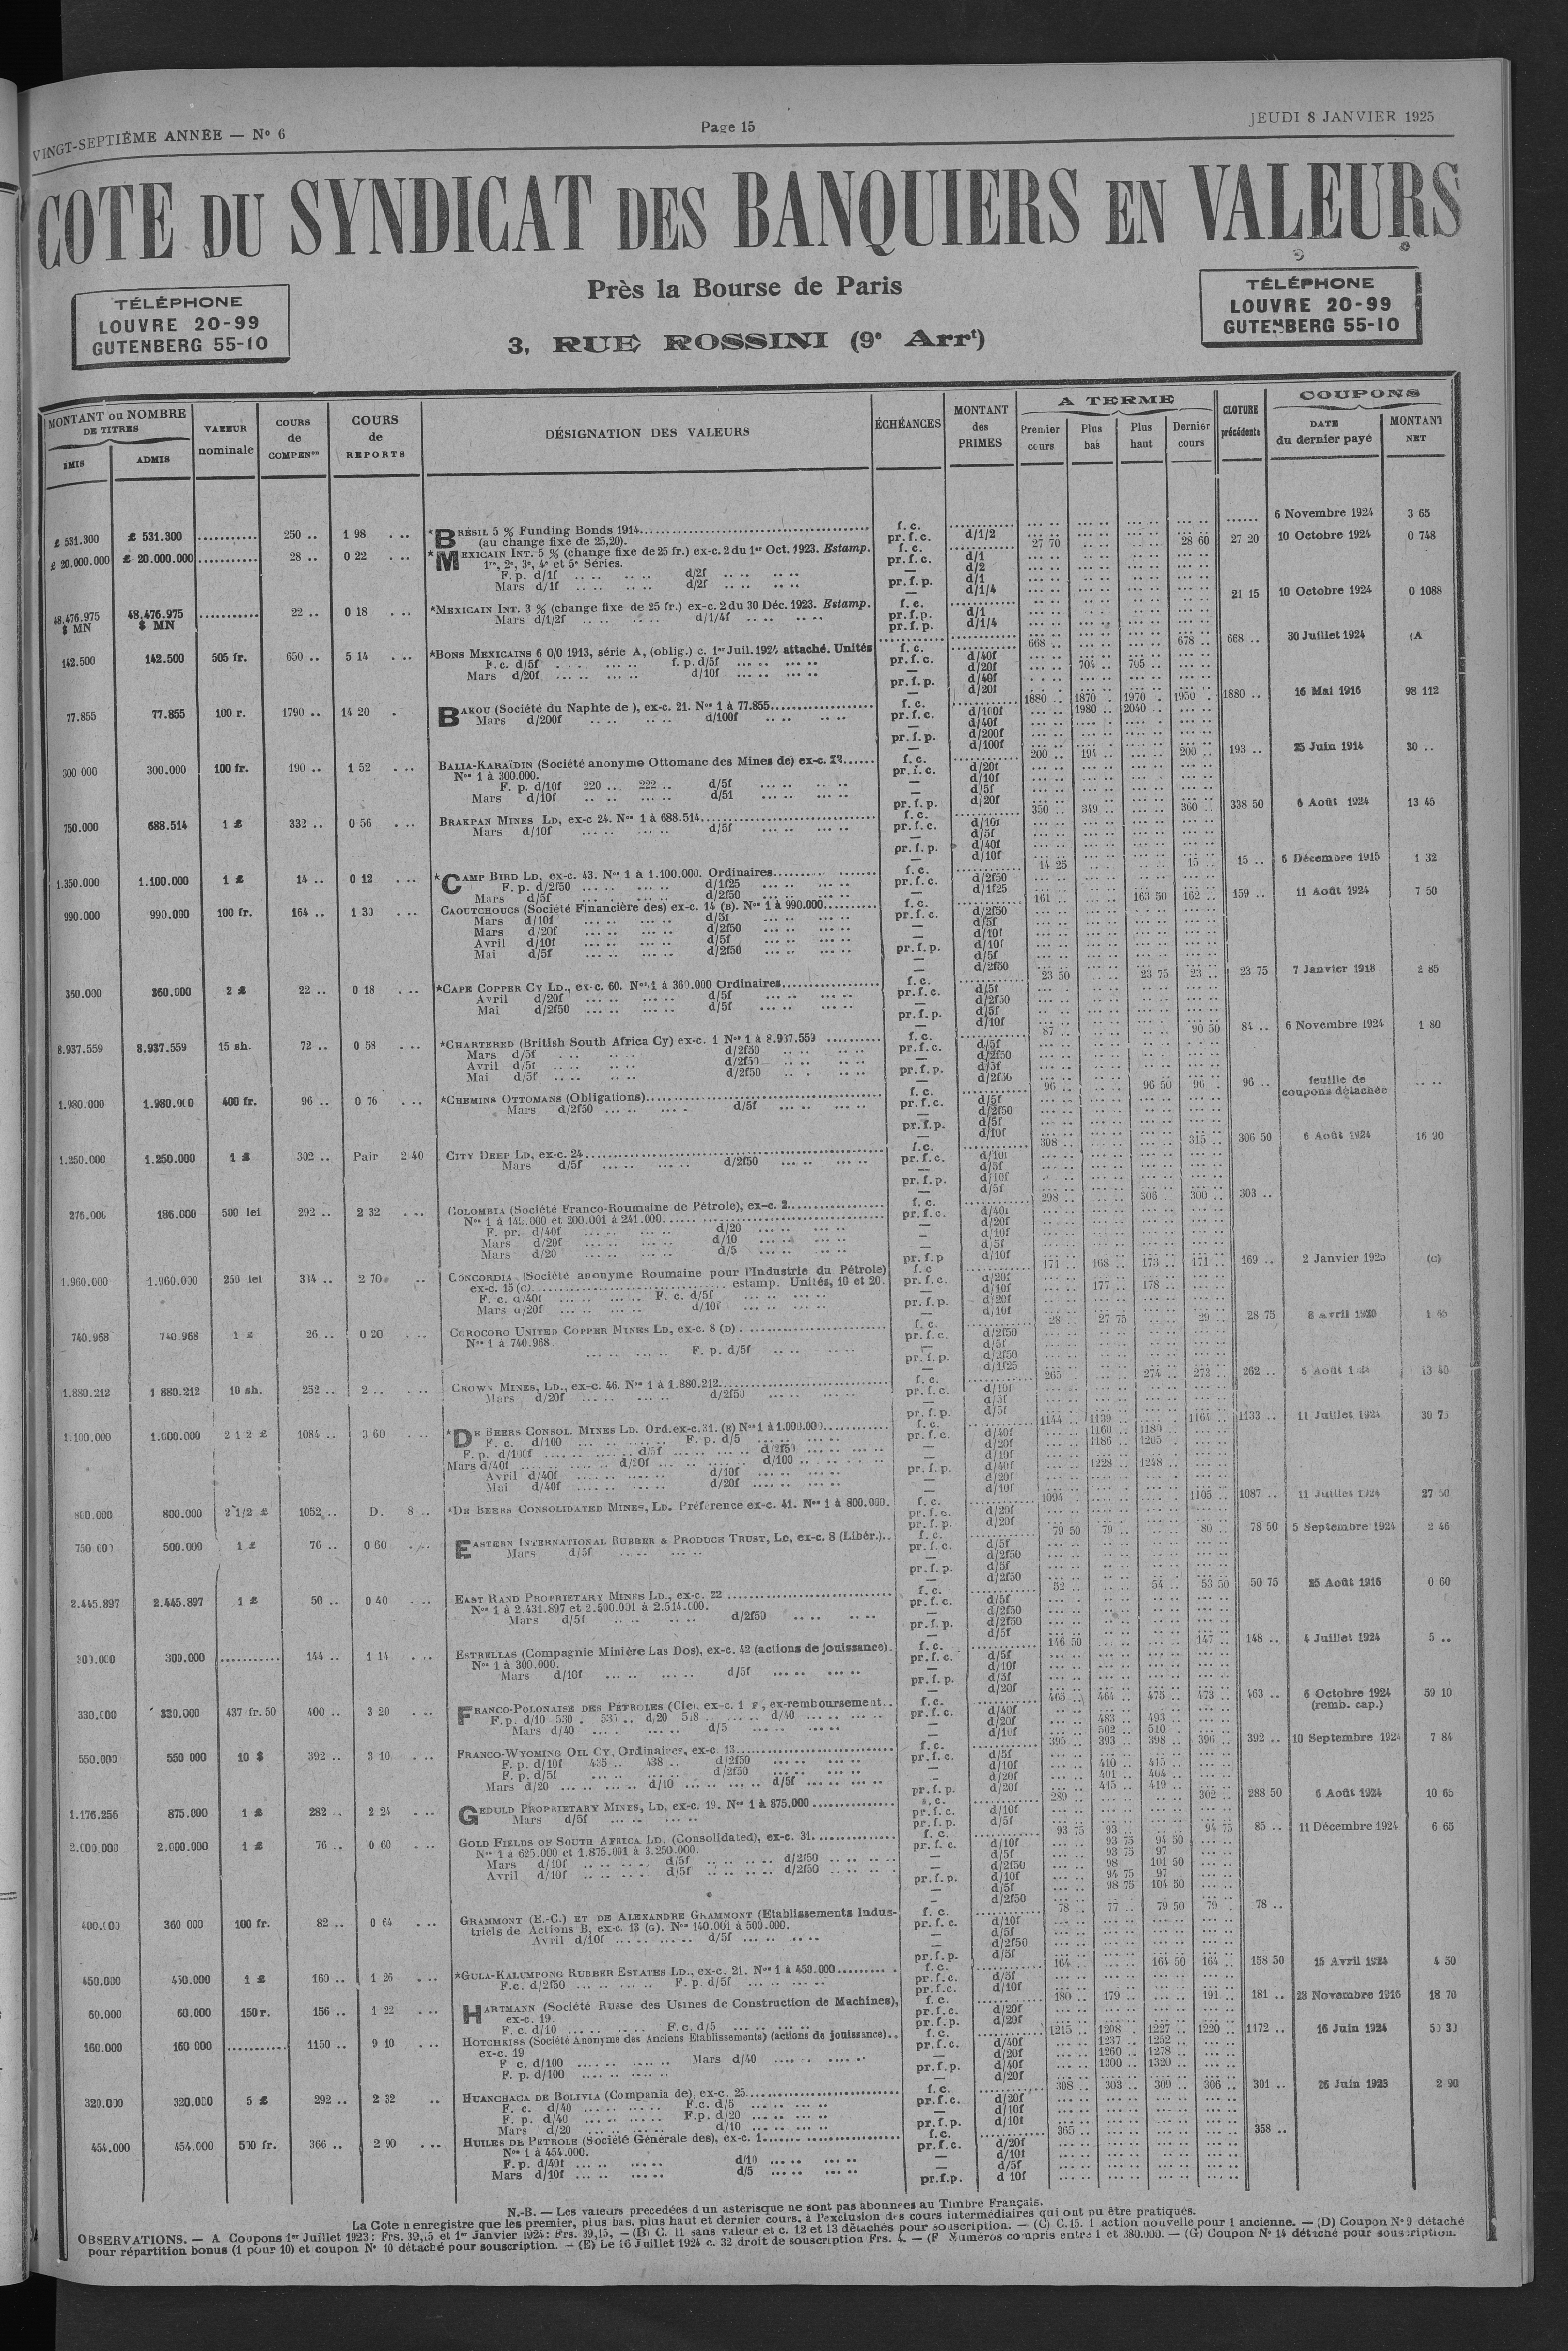 VINGT-SEPTIÈME ANNÉE — N° 6
Page 15
JEUDI 8 JANVIER 1925
COTE DU SYNDICAT DES BANQUIERS EN VALEURS
Près la Bourse de Paris
3, RUE ROSSINI (9e Arrt)
TÉLÉPHONE
LOUVRE 20-99
GUTENBERG 55-10
TÉLÉPHONE
LOUVRE 20-99
GUTENBERG 55-10
MONTANT ou NOMBRE DE TITRES
ÉMIS
ADMIS
VALEUR nominale
COURS de COMPENon
COURS de REPORTS
DÉSIGNATION DES VALEURS
ÉCHÉANCES
MONTANT des PRIMES
A TERME
Premier cours
Plus bas
Plus haut
Dernier cours
CLOTURE précédente
COUPONS
DATE du dernier payé
MONTANT NET
£ 531.300 £ 531.300 250 .. 1 98 *BRÉSIL 5 % Funding Bonds 1914 f. c. 6 Novembre 1924 3 65
(au change fixe de 25,20). pr. f. c. d/1/2
£ 20.000.000 £ 20.000.000 28 .. 0 22 *MEXICAIN INT. 5 % (change fixe de 25 fr.) ex-c. 2 du 1er Oct. 1923. Estamp. f. c. 27 70 28 60 27 20 10 Octobre 1924 0 748
1re, 2e, 3e, 4e et 5e Séries.
F. p. d/1f d/2f
Mars d/1f d/2f
48.476.975 $ MN 48.476.975 $ MN 22 .. 0 18 *MEXICAIN INT. 3 % (change fixe de 25 fr.) ex-c. 2 du 30 Déc. 1923. Estamp. f. c. 21 15 10 Octobre 1924 0 1088
Mars d/1/2f d/1/4f
142.500 142.500 505 fr. 650 .. 5 14 *BONS MEXICAINS 6 0/0 1913, série A, (oblig.) c. 1er Juil. 1924 attaché. Unités f. c. 668 .. 678 .. 668 .. 30 Juillet 1924 (A
F.c. d/5f f. p. d/5f
Mars d/20f d/10f
77.855 77.855 100 r. 1790 .. 14 20 BAKOU (Société du Naphte de), ex-c. 21. Nos 1 à 77.855 f. c. 1880 .. 1870 .. 1970 .. 1950 .. 1880 .. 16 Mai 1916 98 112
Mars d/200f d/100f pr. f. c. d/100f 1980 .. 2040 ..
300 000 300.000 100 fr. 190 .. 1 52 BALIA-KARAÏDIN (Société anonyme Ottomane des Mines de) f. c. 200 .. 194 .. 200 .. 193 .. 25 Juin 1914 30 ..
Nos 1 à 300.000.
F. p. d/10f 220 .. 222 .. d/5f
Mars d/10f
750.000 688.514 1 £ 332 .. 0 56 BRAKPAN MINES LD, ex-c 24. Nos 1 à 688.514 f. c. 350 .. 349 .. 360 .. 338 50 6 Août 1924 13 45
Mars d/10f d/5f
1.350.000 1.100.000 1 £ 14 .. 0 12 *CAMP BIRD LD, ex-c. 43. Nos 1 à 1.100.000. Ordinaires f. c. 14 25 15 .. 15 .. 6 Décembre 1915 1 32
F. p. d/2f50 d/1f25
Mars d/5f d/2f50
990.000 990.000 100 fr. 164 .. CAOUTCHOUCS (Société Financière des) ex-c. 14 (B). Nos 1 à 990.000 f. c. 161 .. 163 50 162 .. 159 .. 11 Août 1924 7 50
Mars d/10f d/5f
Mars d/20f d/2f50
Avril d/10f d/5f
Mai d/5f d/2f50
360.000 2 £ 22 .. 0 18 *CAPE COPPER CY LD., ex-c. 60. Nos 1 à 360.000 Ordinaires f. c. 23 50 23 75 23 .. 23 75 7 Janvier 1918 2 85
Avril d/20f d/5f
Mai d/2f50 d/5f
8.937.559 8.937.559 15 sh. 72 .. 0 58 *CHARTERED (British South Africa Cy) ex-c. 1 Nos 1 à 8.937.559 f. c. 87 .. 90 50 84 .. 6 Novembre 1924 1 80
Mars d/5f d/2f50
Avril d/5f d/2f50
Mai d/5f d/2f50
1.980.000 1.980.000 400 fr. 96 .. 0 76 *CHEMINS OTTOMANS (Obligations) f. c. 96 .. 96 50 96 .. 96 .. feuille de coupons détachée
Mars d/2f50 d/5f
1.250.000 1.250.000 1 £ 302 .. Pair 2 40 CITY DEEP LD, ex-c. 24 f.c. 308 .. 315 .. 306 50 6 Août 1924 16 90
Mars d/5f d/2f50
276.000 186.000 500 lei 292 .. 2 32 COLOMBIA (Société Franco-Roumaine de Pétrole), ex-c. 2 f. c. 298 .. 306 .. 300 .. 303 ..
F. pr. d/40f d/20
Mars d/20f d/10
Mars d/20 d/5
1.960.000 1.960.000 250 lei 334 .. 2 70 CONCORDIA (Société anonyme Roumaine pour l'Industrie du Pétrole) f. c 171 .. 168 .. 173 .. 171 .. 169 .. 2 Janvier 1925 (C)
ex-c. 15 (C) estamp. Unités, 10 et 20. 177 .. 178 ..
F. c. d/40f F. c. d/5f
Mars d/20f d/10f
740.968 740.968 1 £ 26 .. 0 20 COROCORO UNITED COPPER MINES LD, ex-c. 8 (D) f. c. 28 .. 27 75 29 .. 28 75 1 65
Nos 1 à 740.968
F. p. d/5f
1.880.212 1 880.212 10 sh. 252 .. 2 .. CROWN MINES, LD., ex-c. 46. Nos 1 à 1.880.212 f. c. 265 .. 274 .. 273 .. 262 .. 13 40
Mars d/20f d/2f50
1.100.000 1.000.000 2 1 2 £ 1084 .. 3 60 *DE BEERS CONSOL. MINES LD. Ord. ex-c. 31. (E) Nos 1 à 1.000.000 f. c. 1144 .. 1139 .. 1164 .. 1133 .. 11 Juillet 1924 30 75
F. c. d/100 F. p. d/5 1160 .. 1180 ..
F. p. d/100f d/5f d/2f50 1186 .. 1205 ..
Mars d/40f d/20f d/100 1228 .. 1248 ..
Avril d/40f d/10f
Mai d/40f d/20f
800.000 800.000 2 1/2 £ 1052 .. D. 8 .. *DE BEERS CONSOLIDATED MINES, LD. Préférence ex-c. 41. Nos 1 à 800.000. f. c. 1094 .. 1105 .. 1087 .. 11 Juillet 1924 27 50
750.000 500.000 1 £ 76 .. 0 60 EASTERN INTERNATIONAL RUBBER & PRODUCE TRUST, LD, ex-c. 8 (Libér.) f. c. 79 50 79 .. 80 .. 78 50 5 Septembre 1924 2 46
Mars d/5f
2.445.897 2.445.897 1 £ 50 .. 0 40 EAST RAND PROPRIETARY MINES LD., ex-c. 22 f. c. 52 .. 54 .. 53 50 50 75 25 Août 1916 0 60
Nos 1 à 2.431.897 et 2.500.001 à 2.514.000.
Mars d/5f d/2f50
300.000 300.000 144 .. 1 14 ESTRELLAS (Compagnie Minière Las Dos), ex-c. 42 (actions de jouissance). f. c. 146 50 147 .. 148 .. 4 Juillet 1924 5 ..
Nos 1 à 300.000.
Mars d/10f d/5f
330.000 330.000 437 fr. 50 400 .. 3 20 FRANCO-POLONAISE DES PÉTROLES (Cie). ex-c. 1 F, ex-remboursement f. c. 465 .. 464 .. 475 .. 473 .. 463 .. 6 Octobre 1924 (remb. cap.) 59 10
F. p. d/10 530 .. 535 .. d/20 518 .. d/40 483 .. 493 ..
Mars d/40 d/5 502 .. 510 ..
550.000 550 000 10 $ 392 .. 3 10 FRANCO-WYOMING OIL CY, Ordinaires, ex-c. 13 f. c. 395 .. 393 .. 398 .. 396 .. 392 .. 10 Septembre 1924 7 84
F. p. d/10f 435 .. 438 .. d/2f50 410 .. 415 ..
F. p. d/5f d/2f50 401 .. 404 ..
Mars d/20 d/10 d/5f 415 .. 419 ..
1.176.256 875.000 1 £ 282 .. 2 24 GEDULD PROPRIETARY MINES, LD, ex-c. 19. Nos 1 à 875.000 289 .. 302 .. 288 50 6 Août 1924 10 65
Mars d/5f
2.000.000 2.000.000 1 £ 76 .. 0 60 GOLD FIELDS OF SOUTH AFRICA LD. (Consolidated), ex-c. 31. f. c. 93 75 93 .. 94 75 85 .. 11 Décembre 1924 6 65
Nos 1 à 625.000 et 1.875.001 à 3.250.000. 93 75 94 50
Mars d/10f d/5f d/2f50 93 75 97
Avril d/10f d/5f d/2f50 98 101 50
94 75 97
98 75 104 50
400.000 360 000 100 fr. 82 .. 0 64 GRAMMONT (E.-C.) ET DE ALEXANDRE GRAMMONT (Etablissements Indus- f. c. 78 .. 77 .. 79 50 79 .. 78 ..
triels de Actions B, ex-c. 13 (G). Nos 140.001 à 500.000.
Avril d/10f d/5f
450.000 450.000 1 £ 160 .. 1 26 *GULA-KALUMPONG RUBBER ESTATES LD., ex-c. 21. Nos 1 à 450.000 f. c. 164 .. 164 50 164 .. 158 50 15 Avril 1924 4 50
F.c. d/2f50 F. p. d/5f
60.000 60.000 150 r. 156 .. 1 22 HARTMANN (Société Russe des Usines de Construction de Machines), f. c. 180 .. 179 .. 191 .. 181 .. 23 Novembre 1916 18 70
ex-c. 19.
F. c. d/10 F. c. d/5
160.000 160 000 1150 .. 9 10 HOTCHKISS (Société Anonyme des Anciens Etablissements) (actions de jouissance) f. c. 1215 .. 1208 .. 1227 .. 1220 .. 1172 .. 16 Juin 1924
ex-c. 19 1237 .. 1252 ..
F c. d/100 Mars d/40 1260 .. 1278 ..
F. p. d/100 1300 .. 1320 ..
320.000 320.000 5 £ 292 .. 2 32 HUANCHACA DE BOLIVIA (Compania de), ex-c. 25 f. c. 308 .. 303 .. 309 .. 306 .. 301 .. 26 Juin 1923 2 90
F. c. d/40 F.c. d/5
F. p. d/40 F.p. d/20
Mars d/20 d/10
454.000 454.000 500 fr. 366 .. 2 90 HUILES DE PETROLE (Société Générale des), ex-c. 1 f. c. 365 .. 358 ..
Nos 1 à 454.000.
F. p. d/40f d/10
Mars d/10f d/5
N.-B. — Les valeurs precedées d un astérisque ne sont pas abonnées au Timbre Français.
La Cote n enregistre que les premier, plus bas, plus haut et dernier cours, à l'exclusion des cours intermédiaires qui ont pu être pratiqués.
OBSERVATIONS. — A Coupons 1er Juillet 1923: Frs. et 1er Janvier 1924: Frs. 39,15, — (B) C. 11 sans valeur et c. 12 et 13 détachés pour souscription. — (C) C. 15. 1 action nouvelle pour 1 ancienne. — (D) Coupon N° 9 détaché
pour répartition bonus (1 pour 10) et coupon N° 10 détaché pour souscription. — (E) Le 16 Juillet 1924 c. 32 droit de souscription Frs. 4. — (F Numéros compris entre 1 et 380.000. — (G) Coupon N° 14 détaché pour souscription.